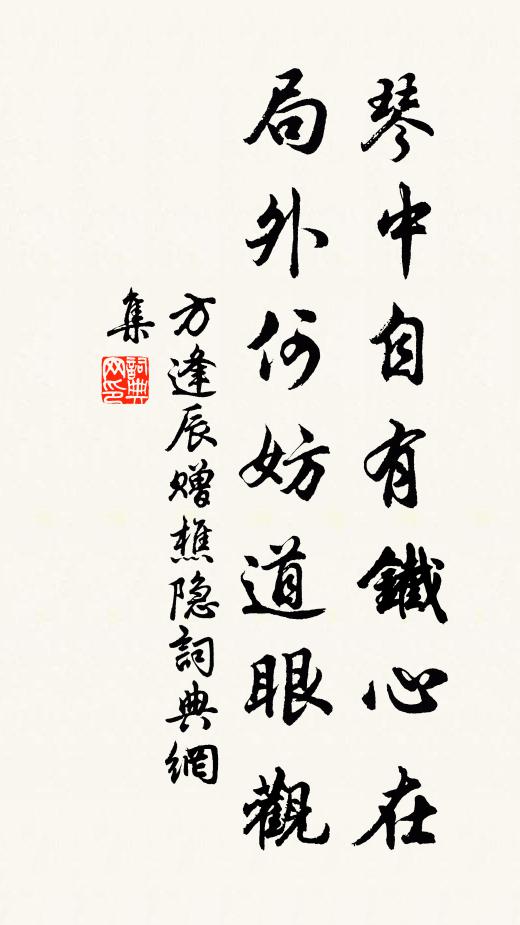 琴中自有鐵心在
局外何妨道眼觀
方逢辰贈樵隐詞典網
集
詞典网印